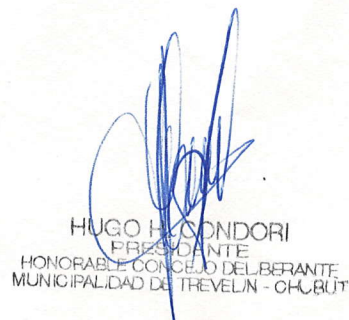 HUGO H. CONDORI
PRESIDENTE
HONORABLE CONCEJO DELIBERANTE
MUNICIPALIDAD DE TREVELIN - CHUBUT